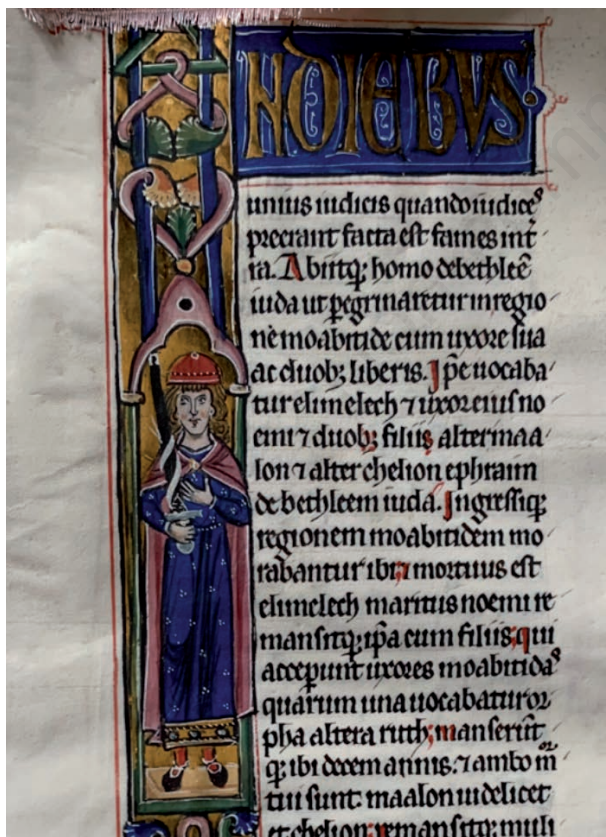 N DIEBVS
unius iudicis quando iudiceˢ
preerant facta est fames int̄
ra. Abiitq; homo debethleē
iuda ut p̲egrinaretur inregio
ne moabitide cum uxore sua
ac duob; liberis. Ip̄e uocaba
tur elimelech ⁊ uxor eius no
emi ⁊ duob; filiis alter maa
lon ⁊ alter chelion ephraim
de bethleem iuda. Ingressiq;
regionem moabitidem mo
rabantur ibi; ⁊ mortuus est
elimelech maritus noemi re
mansitq; ip̄a cum filiis; qui
acceꝑunt uxores moabitidaˢ
quarum una uocabatur or
pha altera ruth; manserūt
q; ibi decem annis. ⁊ ambo m̄
tui sunt: maalon uidelicet
et chelion; remansitq; muli